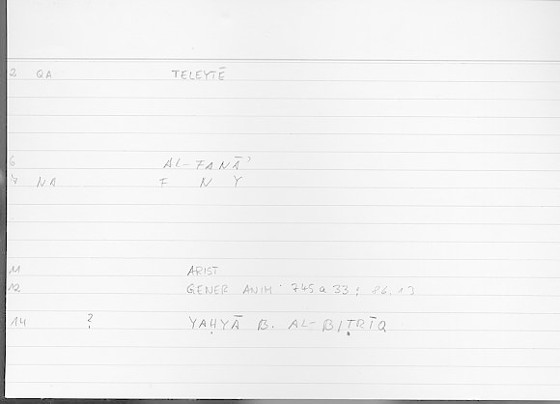 2 QA TELEYTĒ
6 AL-FANĀʾ
NA F N Y
11 ARIST
12 GENER ANIM 745 a 33; 86.13
14 ? YAḤYĀ B. AL-BIṬRĪQ